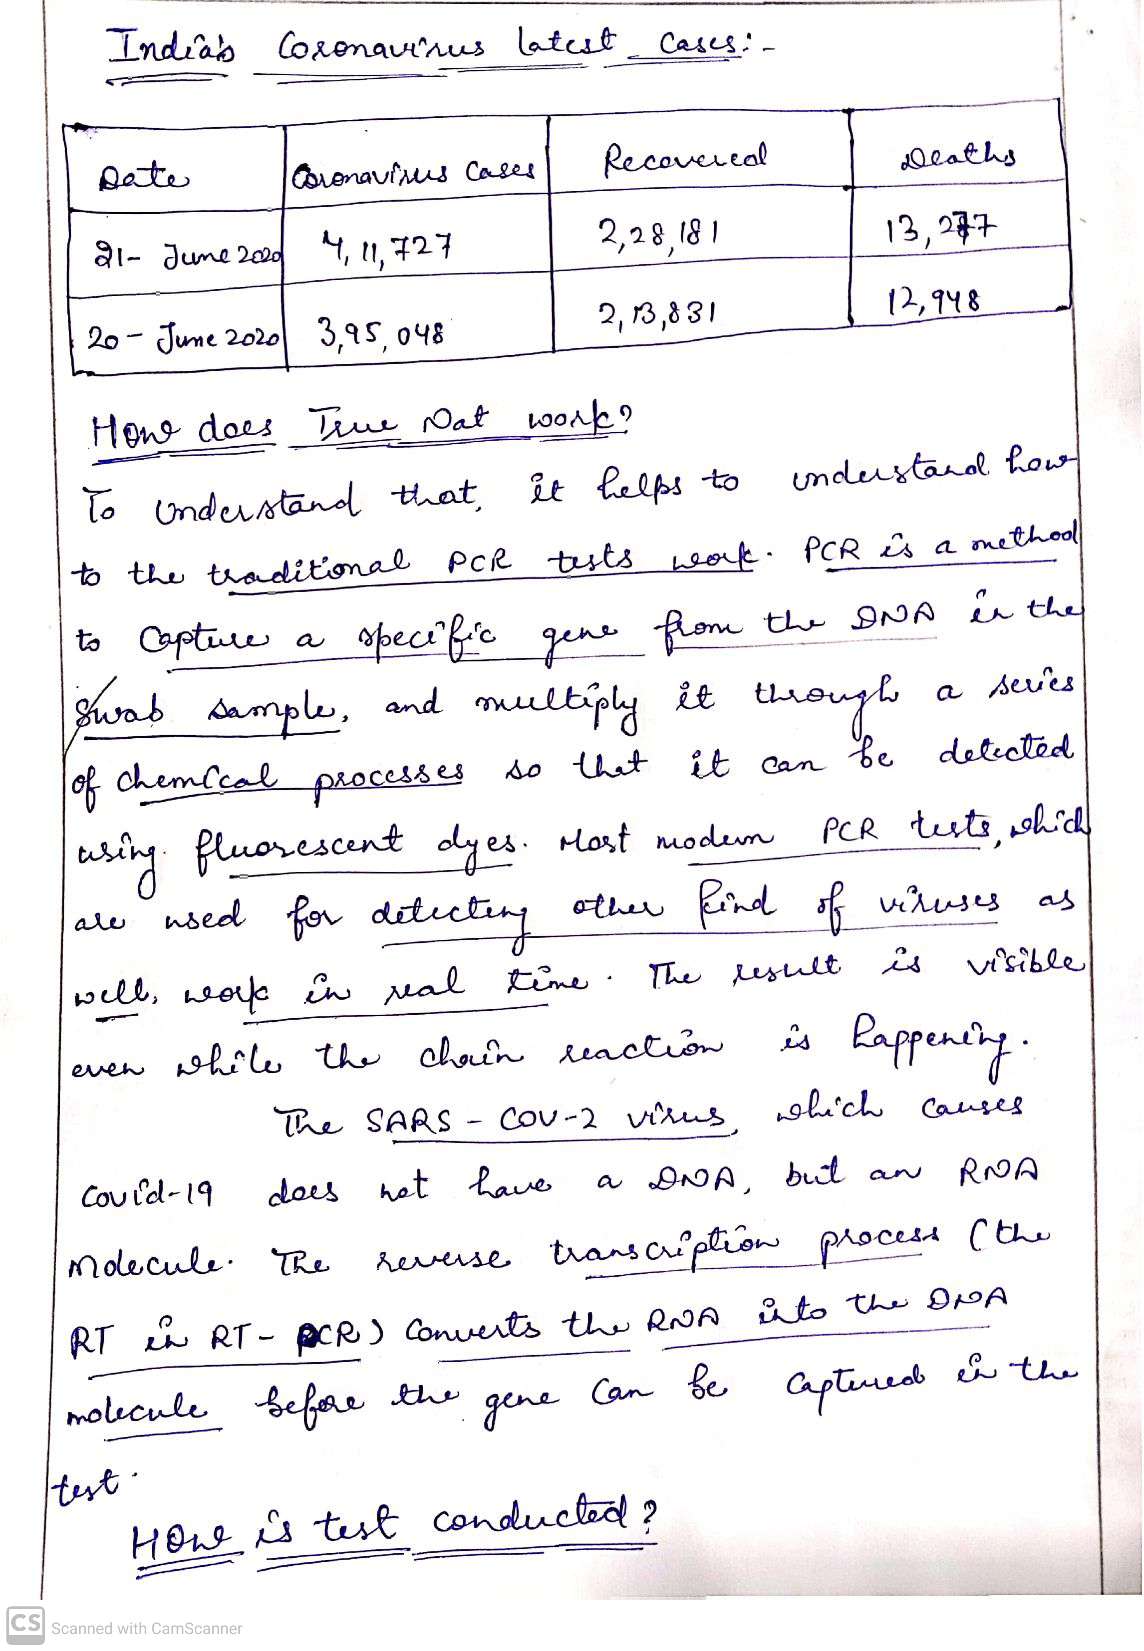 India's Coronavirus latest cases:-
Date Coronavirus Cases Recovered Deaths
21- June 2020 4,11,727 2,28,181 13,277
20- June 2020 3,95,048 2,13,831 12,948
How does True Nat work?
To understand that, it helps to understand how
to the traditional PCR tests work. PCR is a method
to Capture a specific gene from the DNA in the
Swab sample, and multiply it through a series
of chemical processes so that it can be detected
using fluorescent dyes. Most modern PCR tests, which
are used for detecting other kind of viruses as
well, work in real time. The result is visible
even while the chain reaction is happening.
The SARS-COV-2 virus, which causes
Covid-19 does not have a DNA, but an RNA
Molecule. The reverse transcription process (the
RT in RT-PCR) Converts the RNA into the DNA
molecule before the gene Can be Captured in the
test.
How is test conducted?
CS Scanned with CamScanner